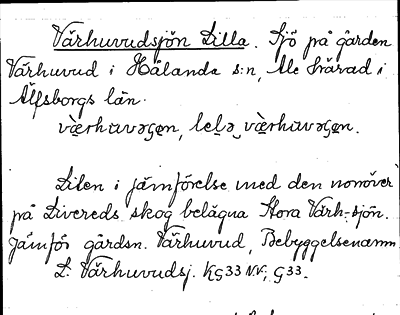 Värhuvudsjön Lilla. Sjö på gården
Värhuvud i Hålanda s:n, Ale härad i
Älfsborgs län.
væ̀rhʉvəʃɶn, lelə væ̀rhʉvəʃɶn.
Liten i jämförelse med den norröver
på Livereds skog belägna Stora Värh.-sjön.
Jämför gårdsn. Värhuvud, Bebyggelsenamn.
L. Värhuvudsj. KG33 NV; G33.